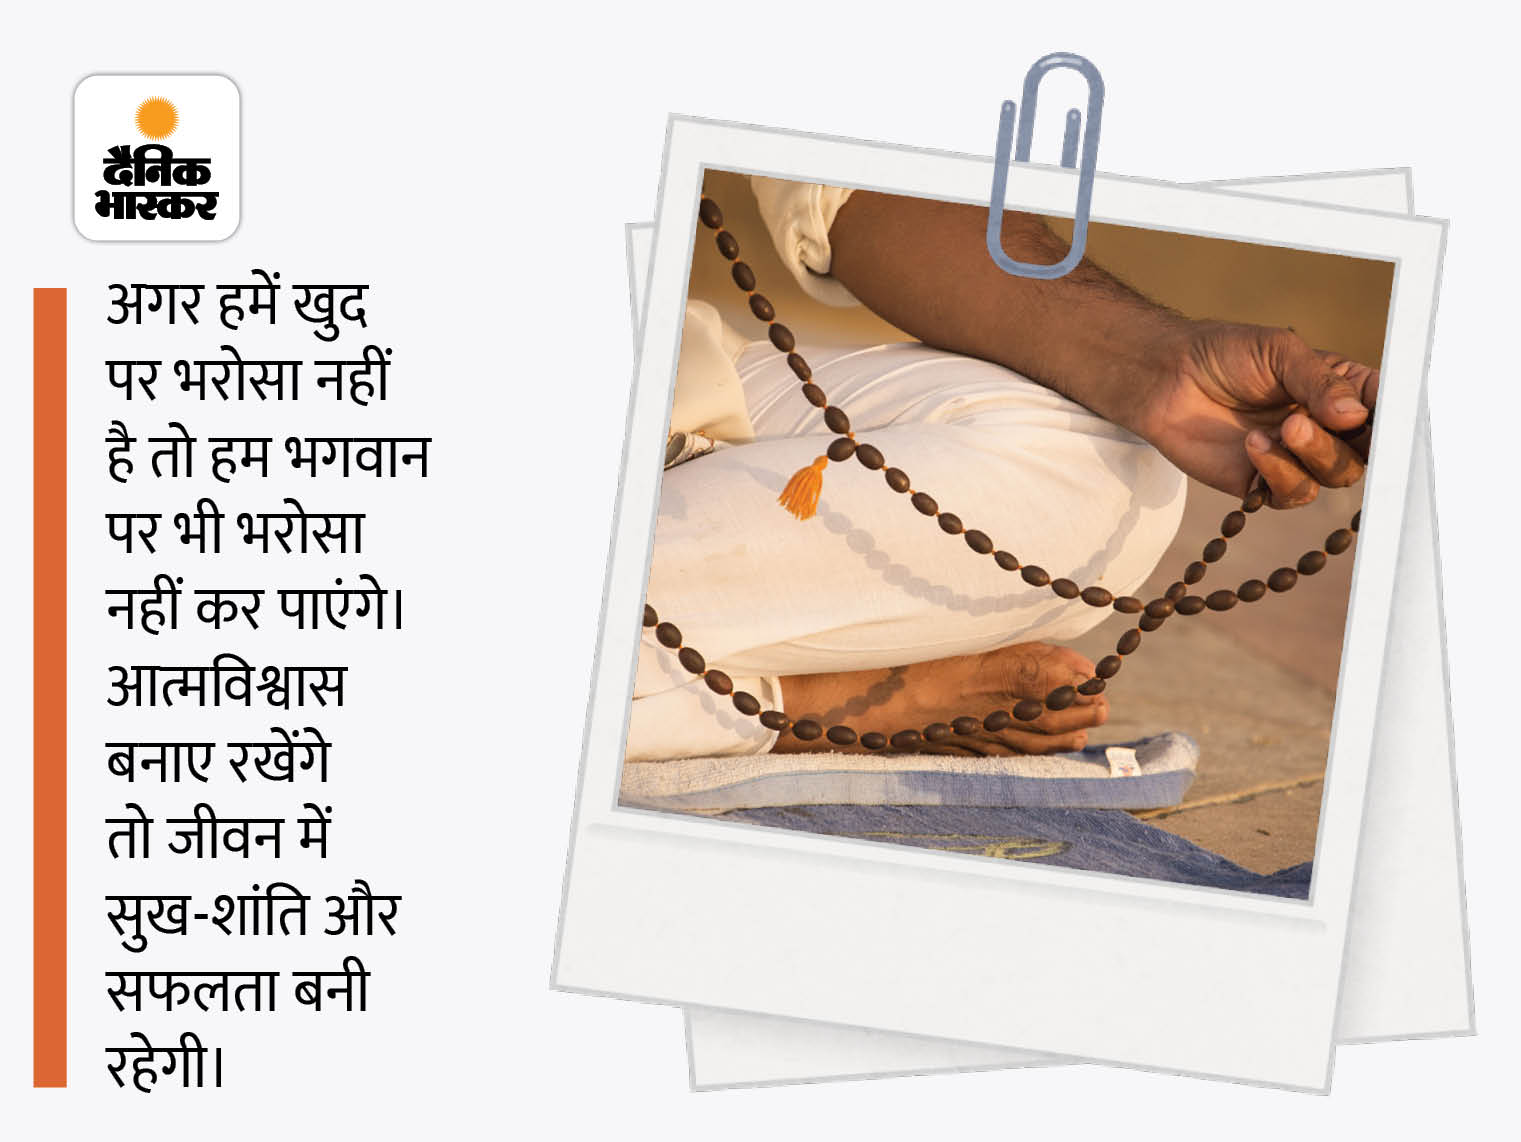 दैनिक
भास्कर
अगर हमें खुद
पर भरोसा नहीं
है तो हम भगवान
पर भी भरोसा
नहीं कर पाएंगे।
आत्मविश्वास
बनाए रखेंगे
तो जीवन में
सुख-शांति और
सफलता बनी
रहेगी।